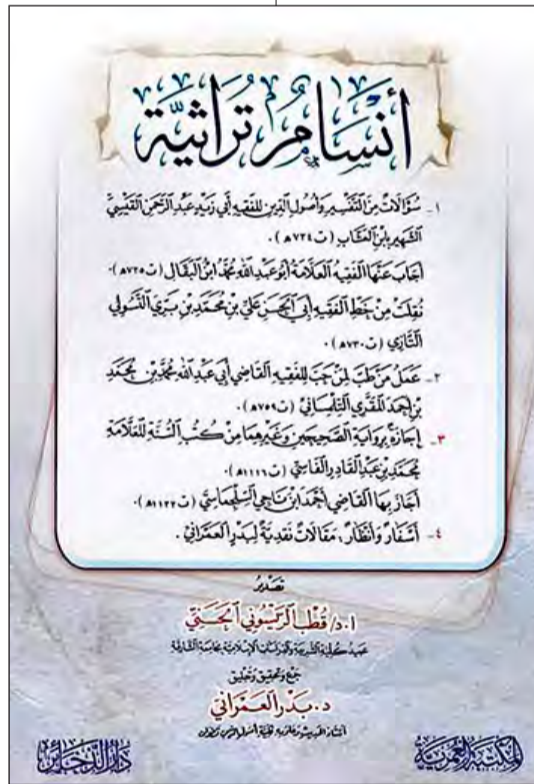 أنسام تراثية
١- سؤالات من التفسير وأصول الدين للفقيه أبي زيد عبد الرحمن القيسي
الشهير بابن العشاب (ت ٧٢٤هـ).
أجاب عنها الفقيه العلامة أبو عبد الله محمد ابن البقال (ت ٧٢٥هـ).
نقلت من خط الفقيه أبي الحسن علي بن محمد بن بري التسولي
التازي (ت ٧٣٠هـ).
٢- عمل من طب لمن حب للفقيه القاضي أبي عبد الله محمد بن محمد
بن أحمد المقري التلمساني (ت ٧٥٩هـ).
٣- إجازة برواية الصحيحين وغيرهما من كتب السنة للعلامة
محمد بن عبد القادر الفاسي (ت ١١١٦هـ).
أجاز بها القاضي أحمد ابن ناجي السجلماسي (ت ١١٢٢هـ).
٤- أسفار وأنظار، مقالات نقدية لبدر العمراني.
تصدير
ا.د/ قطب الريسوني الحسني
عميد كلية الشريعة والدراسات الإسلامية بجامعة الشارقة
جمع وتحقيق وتعليق
د. بدر العمراني
أستاذ الحديث وعلومه بكلية أصول الدين تطوان
المكتبة العمرية
دار الذخائر